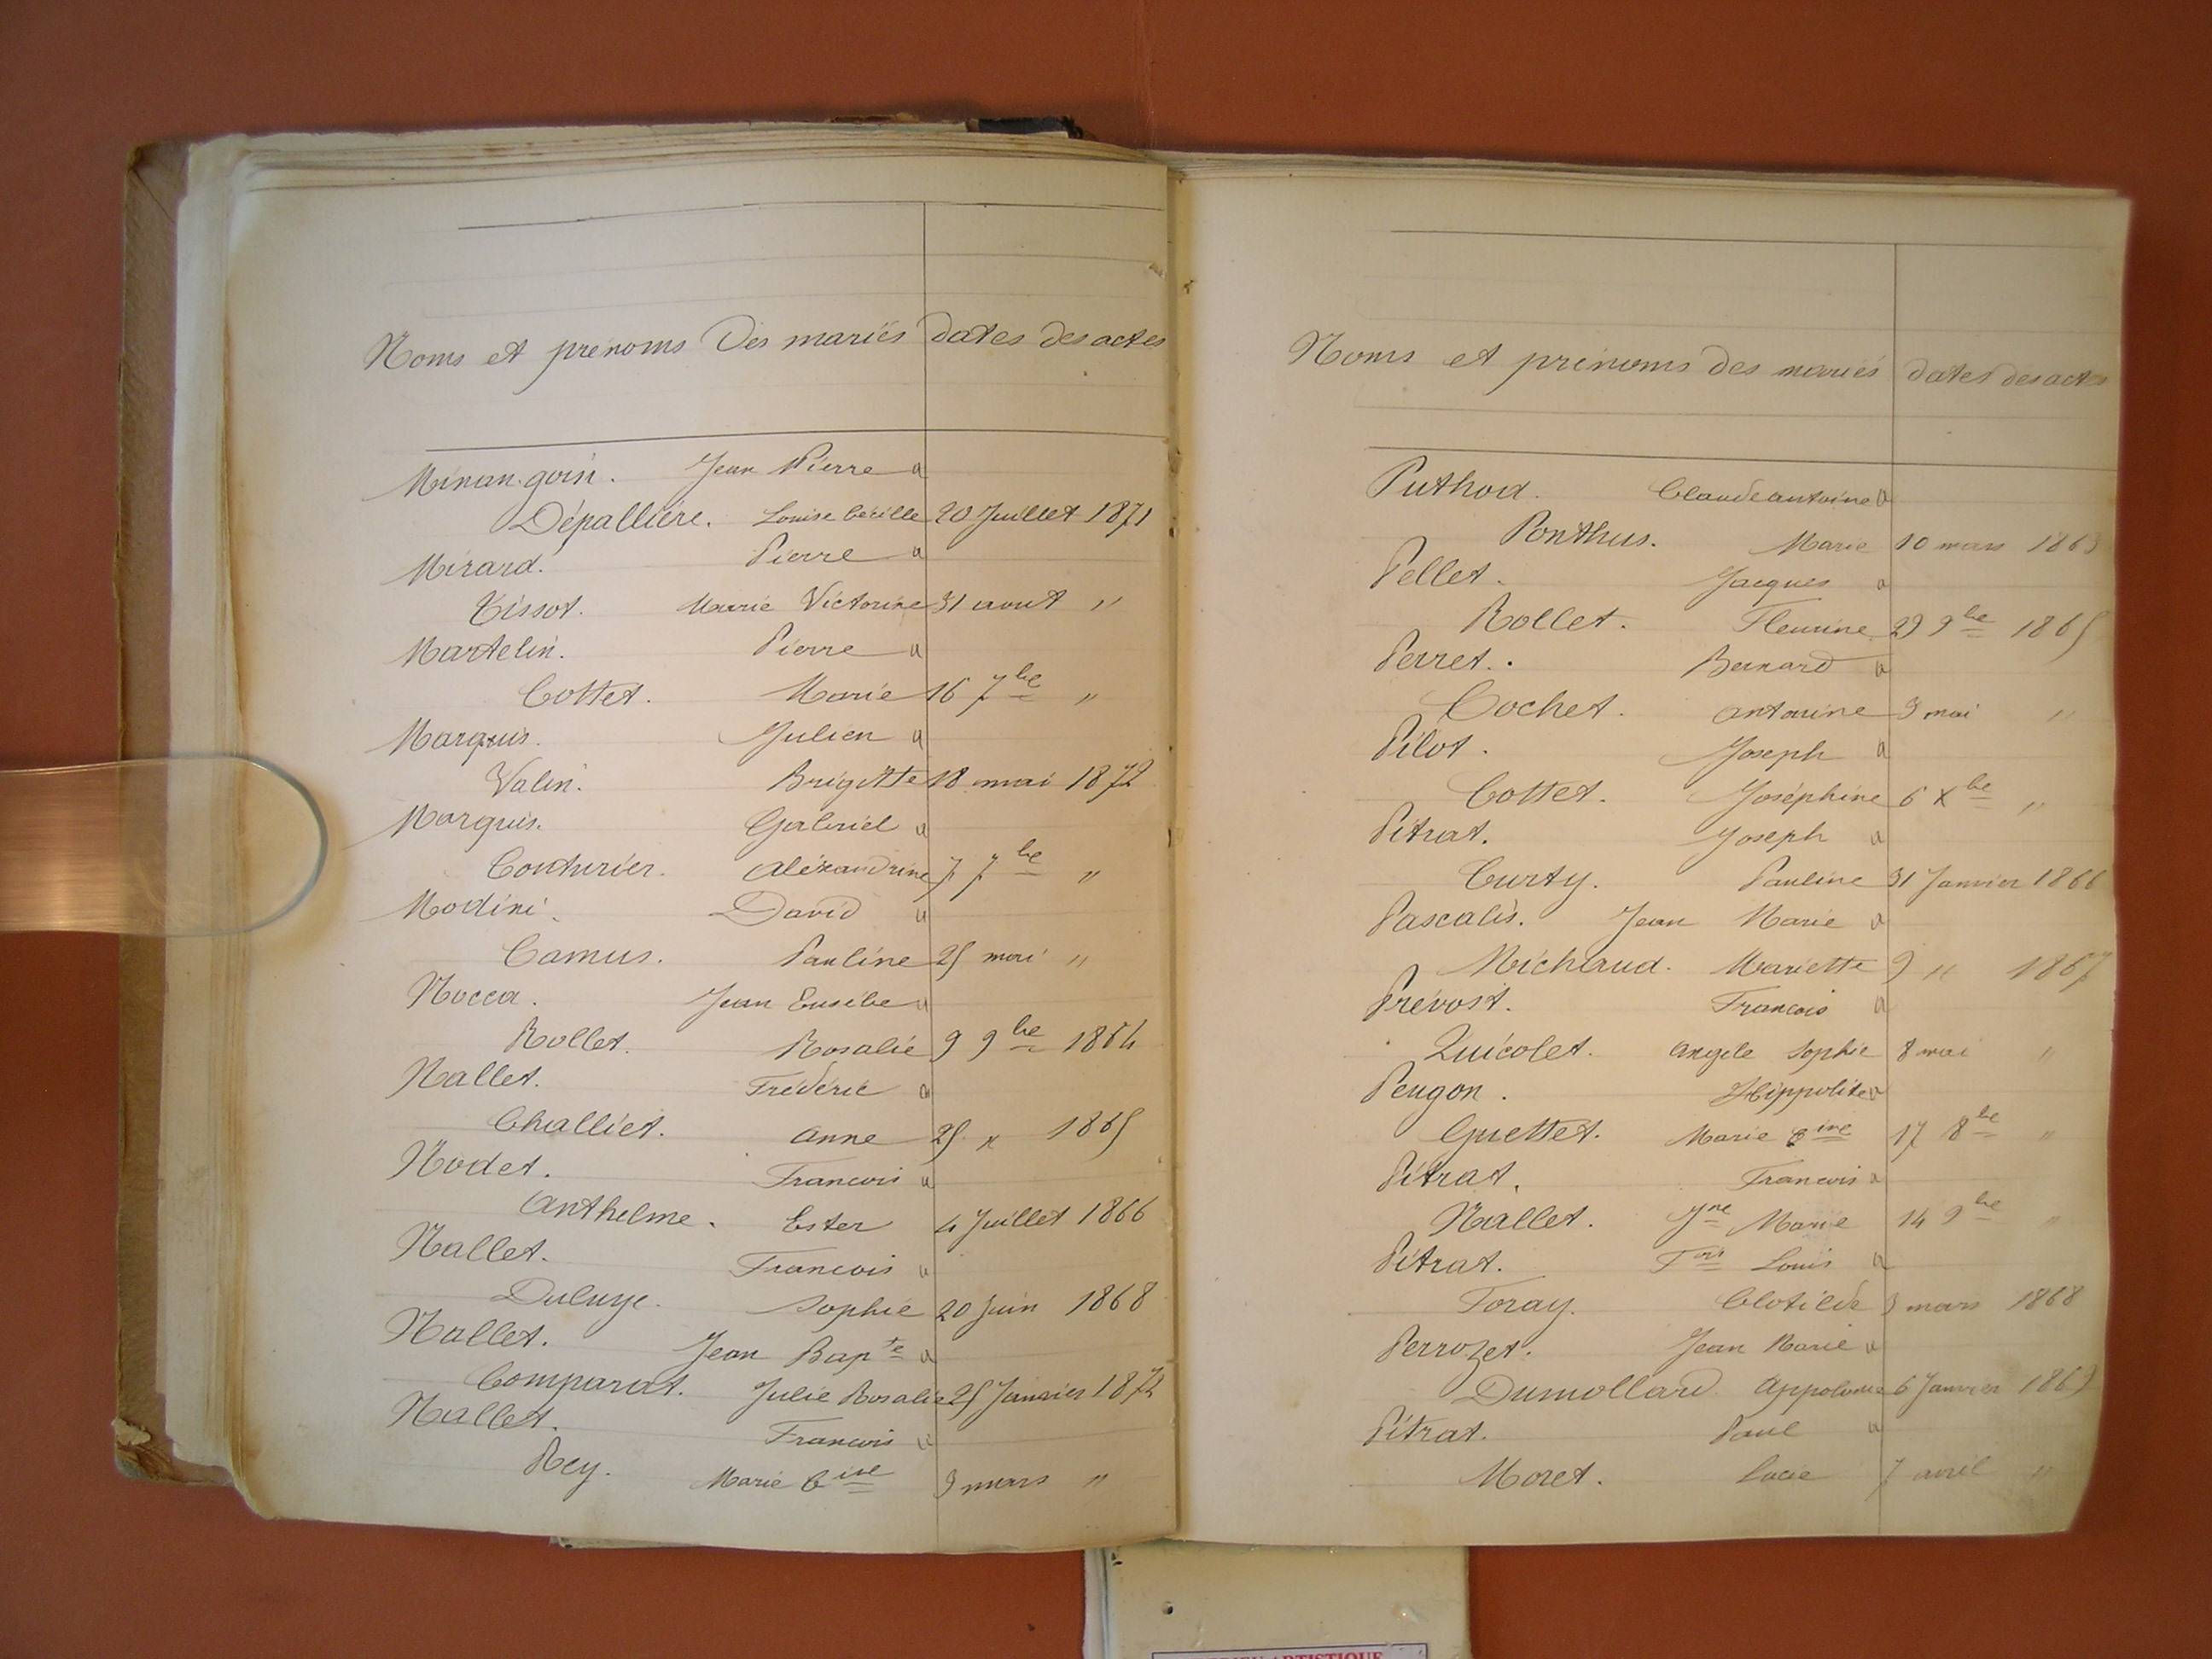 Noms et prénoms Des mariés dates des actes
Minangoin. Jean Pierre a
Dépallière. Louise Cécille 20 Juillet 1871
Mirard. Pierre a
Tissot. Marie Victorine 31 aout "
Martelin. Pierre a
Cottet. Marie 16 7bre "
Marquis. Julien a
Valin. Brigitte 18 mai 1872
Marquis. Gabriel a
Couturier. Aléxandrine 7 7bre "
Modini. David a
Camus. Pauline 25 mai "
Nocca. Jean Eusébe a
Rollet. Rosalie 9 9bre 1864
Nallet. Frédéric a
Challiet. Anne 25 " 1865
Nodet. Francois a
Anthelme. Ester 4 Juillet 1866
Nallet. Francois a
Duluye. Sophie 20 Juin 1868
Nallet. Jean Bapte a
Comparat. Julie Rosalie 25 Janvier 1872
Nallet. Francois a
Rey. Marie Cine 9 mars "
Noms et prénoms des mariés dates des actes
Puthod. Claude antoine a
Ponthus. Marie 10 mars 1863
Pellet. Jacques a
Rollet. Fleurine 29 9bre 1865
Perret. Bernard a
Cochet. Antoinine 9 mai "
Pilot. Joseph a
Cottet. Joséphine 6 Xbre "
Pitrat. Joseph a
Curty. Pauline 31 Janvier 1866
Pascalis. Jean Marie a
Michaud. Mariette 9 " 1867
Prévost. Francois a
Quicolet. Angele Sophie 8 mai "
Peugon. Hippolite a
Guettet. Marie Cine 17 8bre "
Pitrat. Francois a
Nallet. Jne Marie 14 9bre "
Pitrat. Fois Louis a
Foray. Clotilde 9 mars 1868
Perrozet. Jean Marie a
Dumollard Appolonie 6 Janvier 1869
Pitrat. Paul a
Moret. Lucie 7 avril "